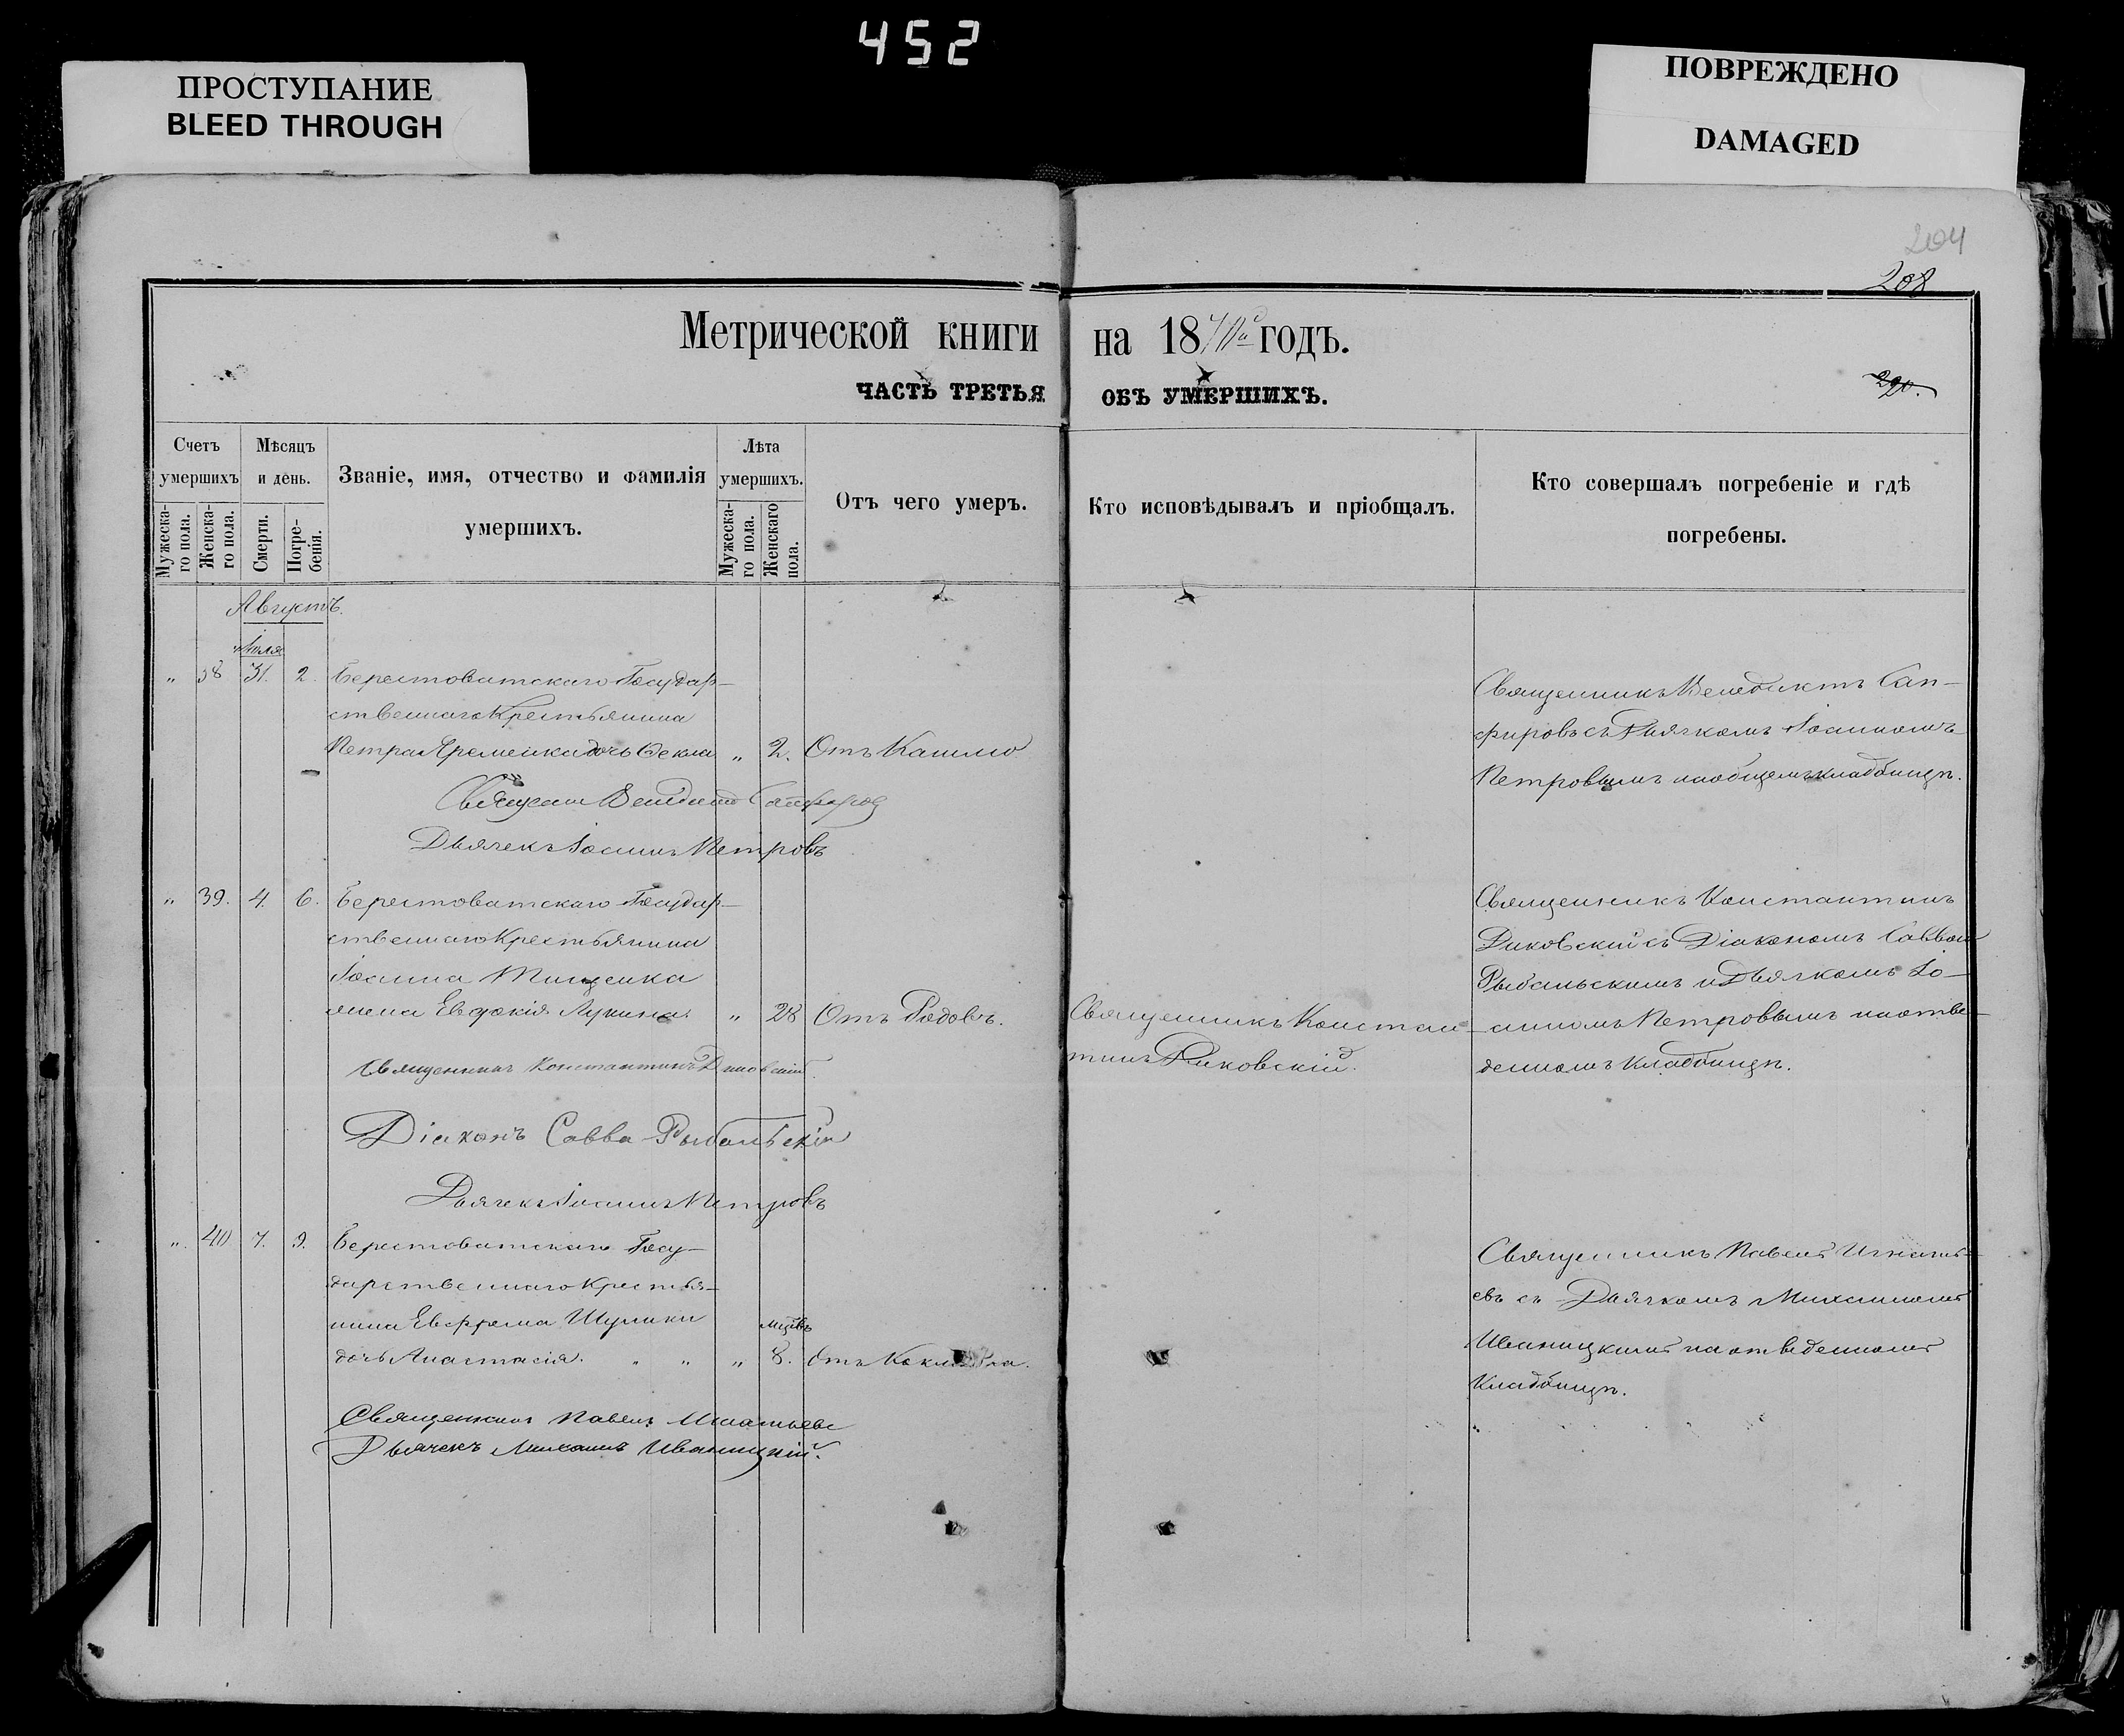 452
ПРОСТУПАНИЕ
BLEED THROUGH
ПОВРЕЖДЕНО
DAMAGED
204
208
Метрической книги на 1870й годъ.
ЧАСТЬ ТРЕТЬЯ ОБЪ УМЕРШИХЪ.
290.
Счетъ умершихъ
Мужеска-го пола.
Женска-го пола.
Мѣсяцъ и день.
Смерти.
Погре-бенія.
Званіе, имя, отчество и фамилія умершихъ.
Лѣта умершихъ.
Мужеска-го пола.
Женскаго пола.
Отъ чего умеръ.
Кто исповѣдывалъ и пріобщалъ.
Кто совершалъ погребеніе и гдѣ погребены.
Августъ.
Іюля
„ 38 31. 2. Берестоватскаго Государ-
ственнаго Крестьянина
Петра Яременка дочь Ѳекла „ 2. Отъ Кашлю
Священникъ Венедиктъ Сап-
фировъ съ Дьячкомъ Іоанномъ
Петровымъ на общемъ кладбищѣ.
Священ Венедиктъ Сапфиров
Дьячекъ Іоаннъ Петровъ
„ 39. 4. 6. Берестоватскаго Государ-
ственнаго Крестьянина
Іоанна Тищенка
жена Евдокія Лукина „ 28 Отъ Родовъ.
Священникъ Констан-
тинъ Диковскій.
Священникъ Константинъ
Диковскій съ Діакономъ Саввою
Рыбальскимъ и Дьячкомъ Іо-
анномъ Петровымъ на отве-
денномъ кладбищѣ.
Священникъ Константинъ Диковскій.
Діаконъ Савва Рыбальскій
Дьячекъ Іоаннъ Петровъ
„ 40 7. 9. Берестоватскаго Госу-
дарственнаго Крестья-
нина Евфрема Шулики
мцвъ
дочь Анастасія. „ „ „ 8. Отъ Коклюша.
Священникъ Павелъ Игнать-
евъ съ Дьячкомъ Михаиломъ
Иваницкимъ на отведенномъ
Кладбищѣ.
Священникъ Павелъ Игнатьевъ
Дьячекъ Михаилъ Иваницкій.